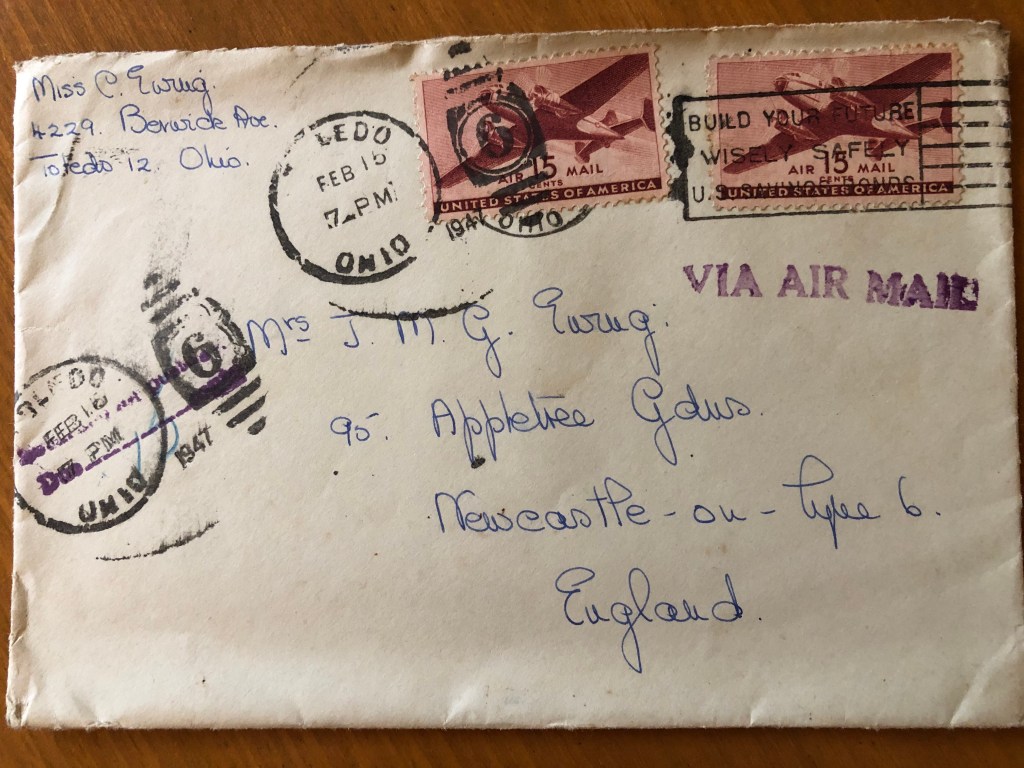 Miss C. Ewing.
4229. Berwick Ave.
Toledo 12. Ohio.
LEDO
FEB 15
7 PM
OHIO
1947
6
OHIO
15
CENTS
AIR MAIL
UNITED STATES OF AMERICA
15
CENTS
AIR MAIL
UNITED STATES OF AMERICA
BUILD YOUR FUTURE
WISELY SAFELY
U.S. SAVINGS BONDS
VIA AIR MAIL
Mrs J. M. G. Ewing.
95. Appletree Gdns.
Newcastle-on-Tyne 6.
England.
6
OLEDO
FEB 16
PM
OHIO
1947